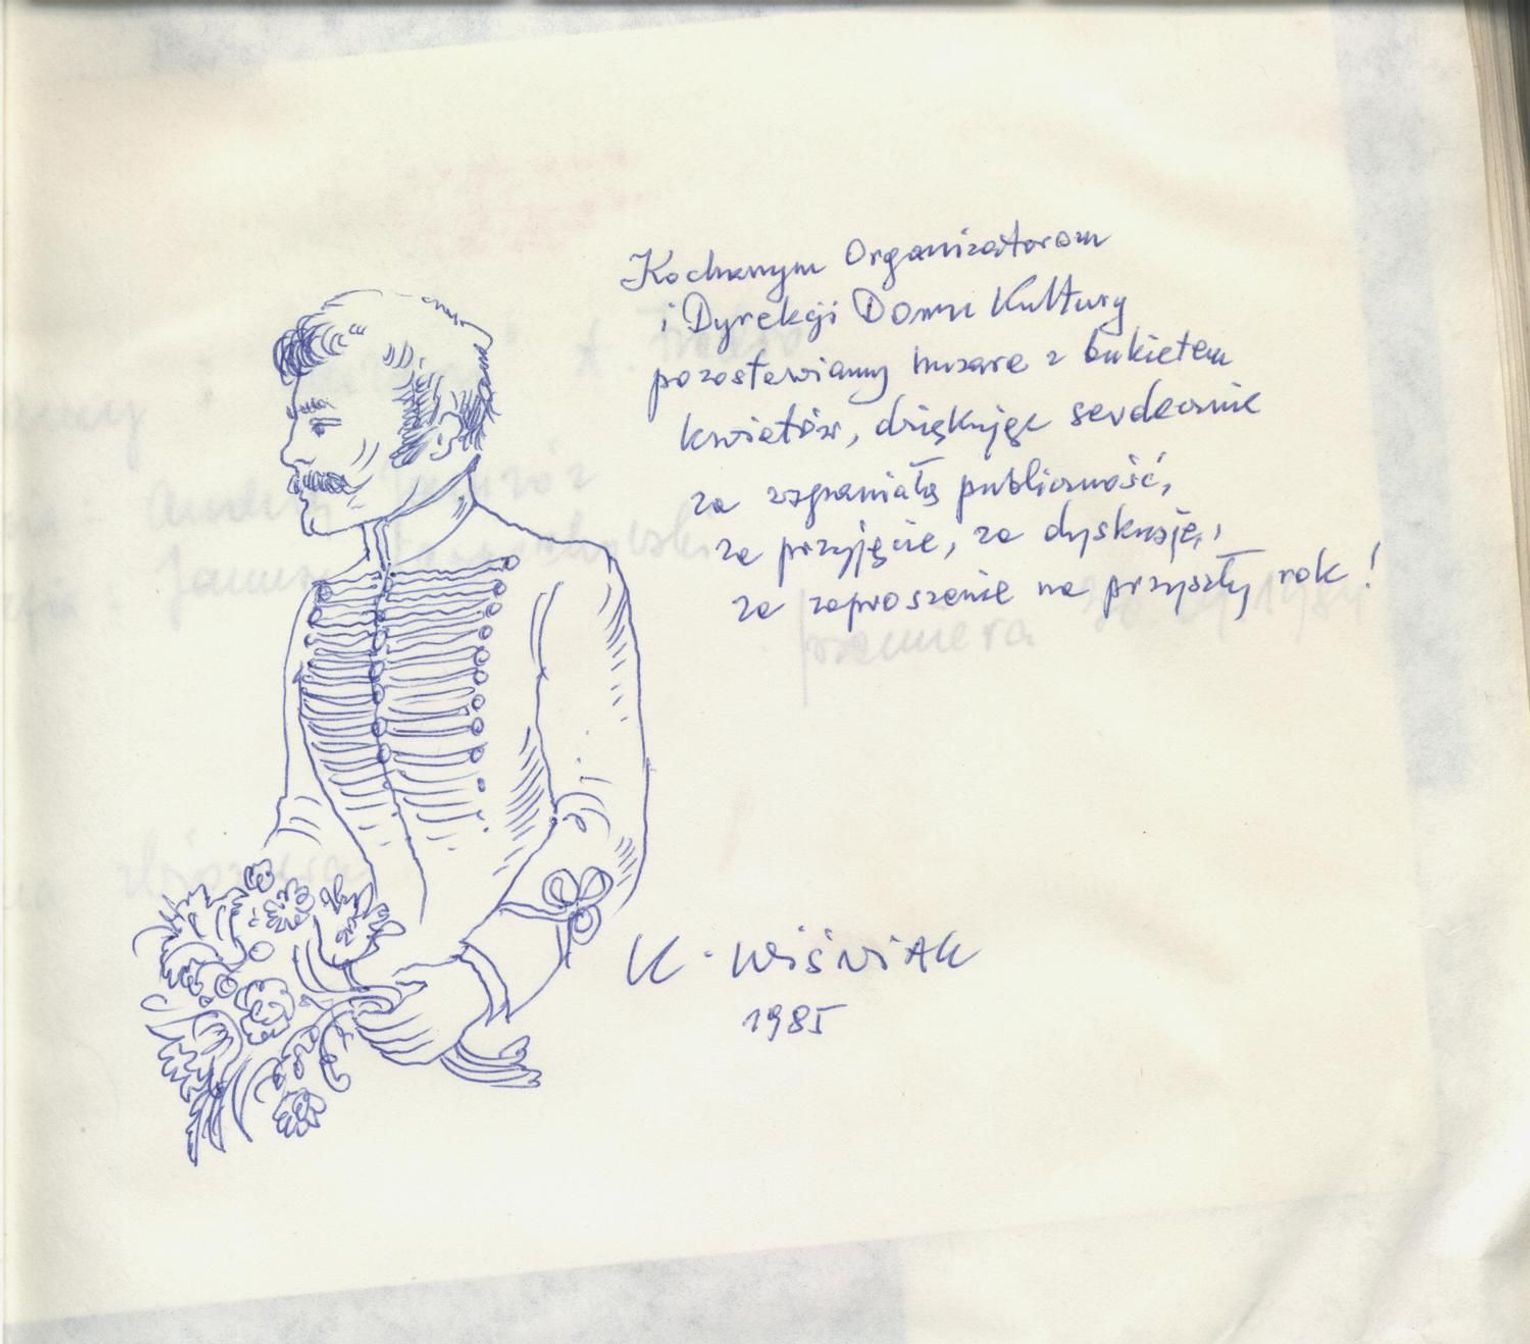 Kochanym Organizatorom
i Dyrekcji Domu Kultury
pozostawiamy huzara z bukietem
kwiatów, dziękując serdecznie
za wspaniałą publiczność,
za przyjęcie, za dyskusję,
za zaproszenie na przyszły rok!
K. WiśniAK
1985
premiera